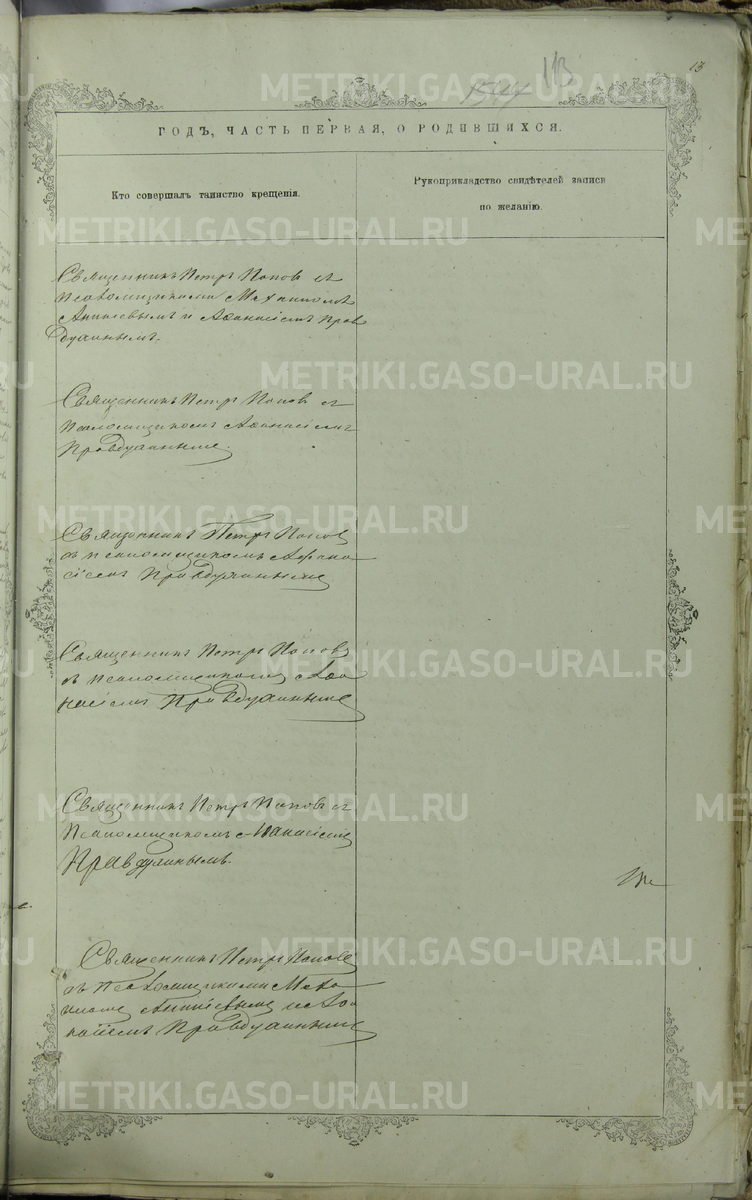 113
13
ГОДЪ, ЧАСТЬ ПЕРВАЯ, О РОДИВШИХСЯ.
Кто совершалъ таинство крещенія.
Рукоприкладство свидѣтелей записи
по желанію.
Священникъ Петръ Попов съ
псаломщиками
и Афанасіемъ Прав
дулинымъ.
Священникъ Петръ Попов съ
псаломщикомъ Афанасіемъ
Правдулинымъ.
Священникъ Петръ Попов
съ псаломщикомъ Афана
сіемъ Правдулинымъ
Священникъ Петръ Поповъ
съ псаломщикомъ Афа
насіемъ Правдулинымъ
Священникъ Петръ Поповъ съ
псаломщикомъ Афанасіемъ
Правдулинымъ.
Священникъ Петръ Попов
съ псаломщиками
и Афа
насіемъ Правдулинымъ
METRIKI.GASO-URAL.RU